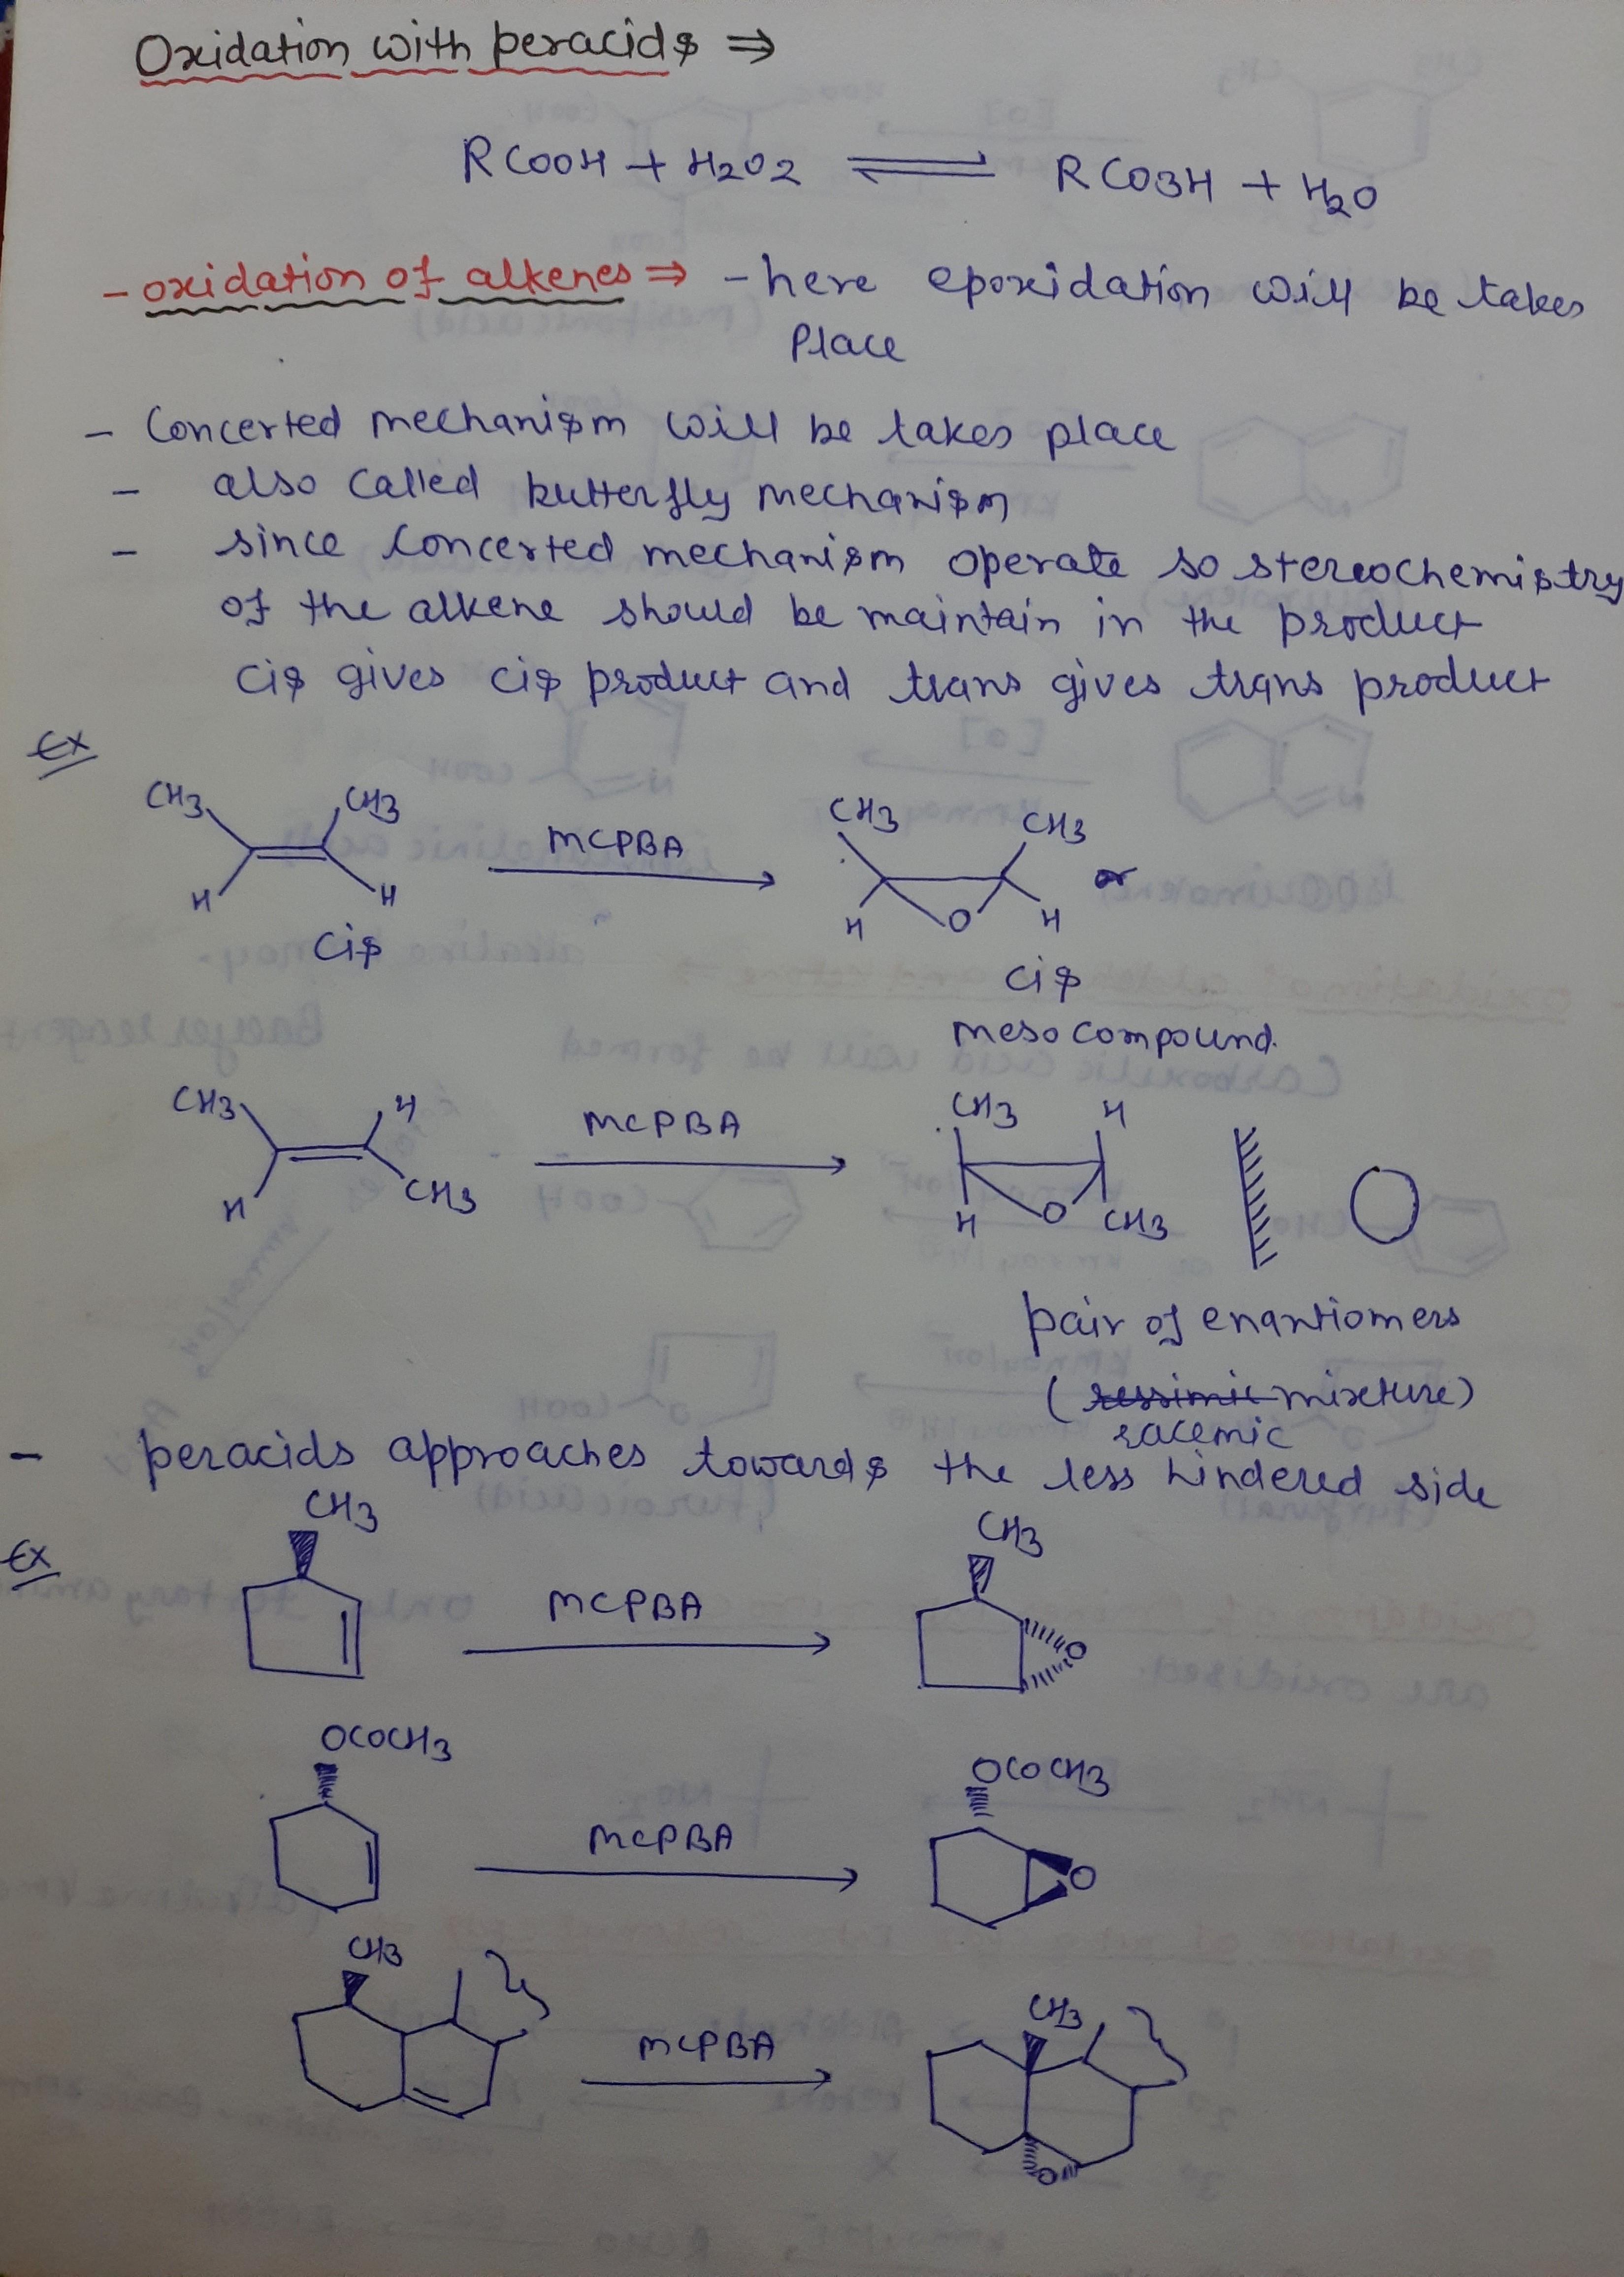 Oxidation with peracids ⇒
RCOOH + H2O2 ⇌ RCO3H + H2O
- oxidation of alkenes ⇒ - here epoxidation will be takes
Place
- Concerted mechanism will be takes place
- also called butterfly mechanism
- since concerted mechanism operate so stereochemistry
of the alkene should be maintain in the product
cis gives cis product and trans gives trans product
Ex
CH3 CH3 MCPBA CH3 CH3 or
H H H O H
cis cis
meso compound.
CH3 H MCPBA CH3 H
H CH3 H O CH3
pair of enantiomers
(mixture)
racemic
- peracids approaches towards the less hindered side
Ex
CH3 MCPBA CH3
O
OCOCH3 MCPBA OCOCH3
O
CH3 MCPBA CH3
O